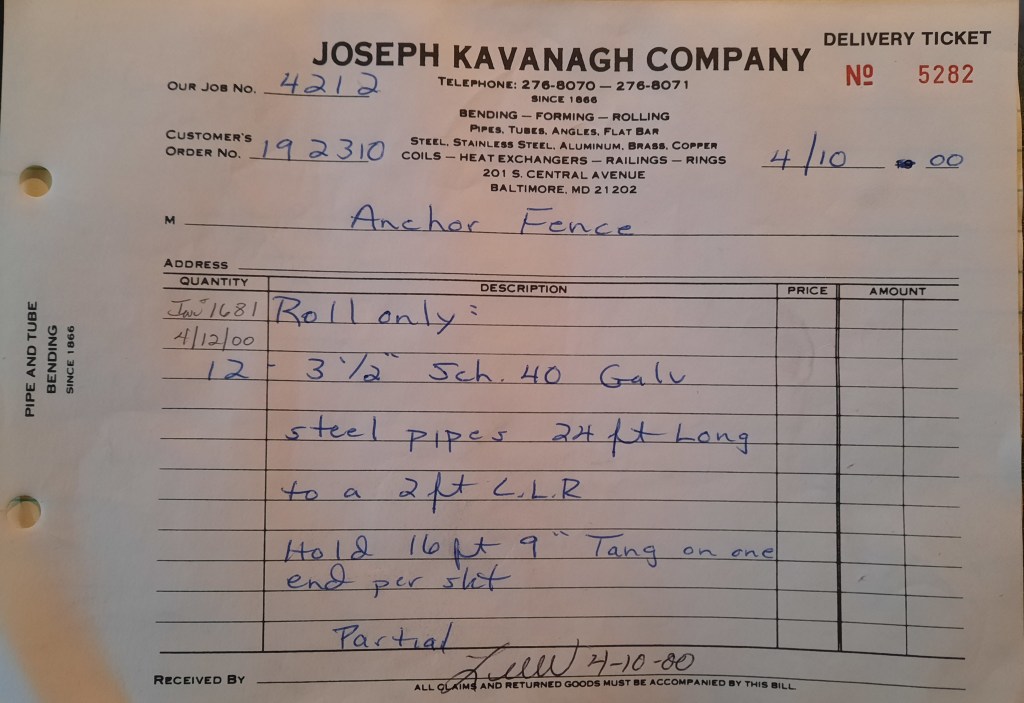 JOSEPH KAVANAGH COMPANY
DELIVERY TICKET
Nº 5282
TELEPHONE: 276-8070 — 276-8071
SINCE 1866
OUR JOB NO. 4212
BENDING — FORMING — ROLLING
PIPES, TUBES, ANGLES, FLAT BAR
STEEL, STAINLESS STEEL, ALUMINUM, BRASS, COPPER
COILS — HEAT EXCHANGERS — RAILINGS — RINGS
201 S. CENTRAL AVENUE
BALTIMORE, MD 21202
CUSTOMER'S
ORDER NO. 192310
4/10 00
M Anchor Fence
ADDRESS
QUANTITY DESCRIPTION PRICE AMOUNT
1681 Roll only:
4/12/00
12 - 3 1/2" Sch. 40 Galv
steel pipes 24 ft Long
to a 2 ft C.L.R
Hold 16 ft 9" Tang on one
end per skt
Partial
RECEIVED BY 4-10-00
ALL CLAIMS AND RETURNED GOODS MUST BE ACCOMPANIED BY THIS BILL
PIPE AND TUBE
BENDING
SINCE 1866